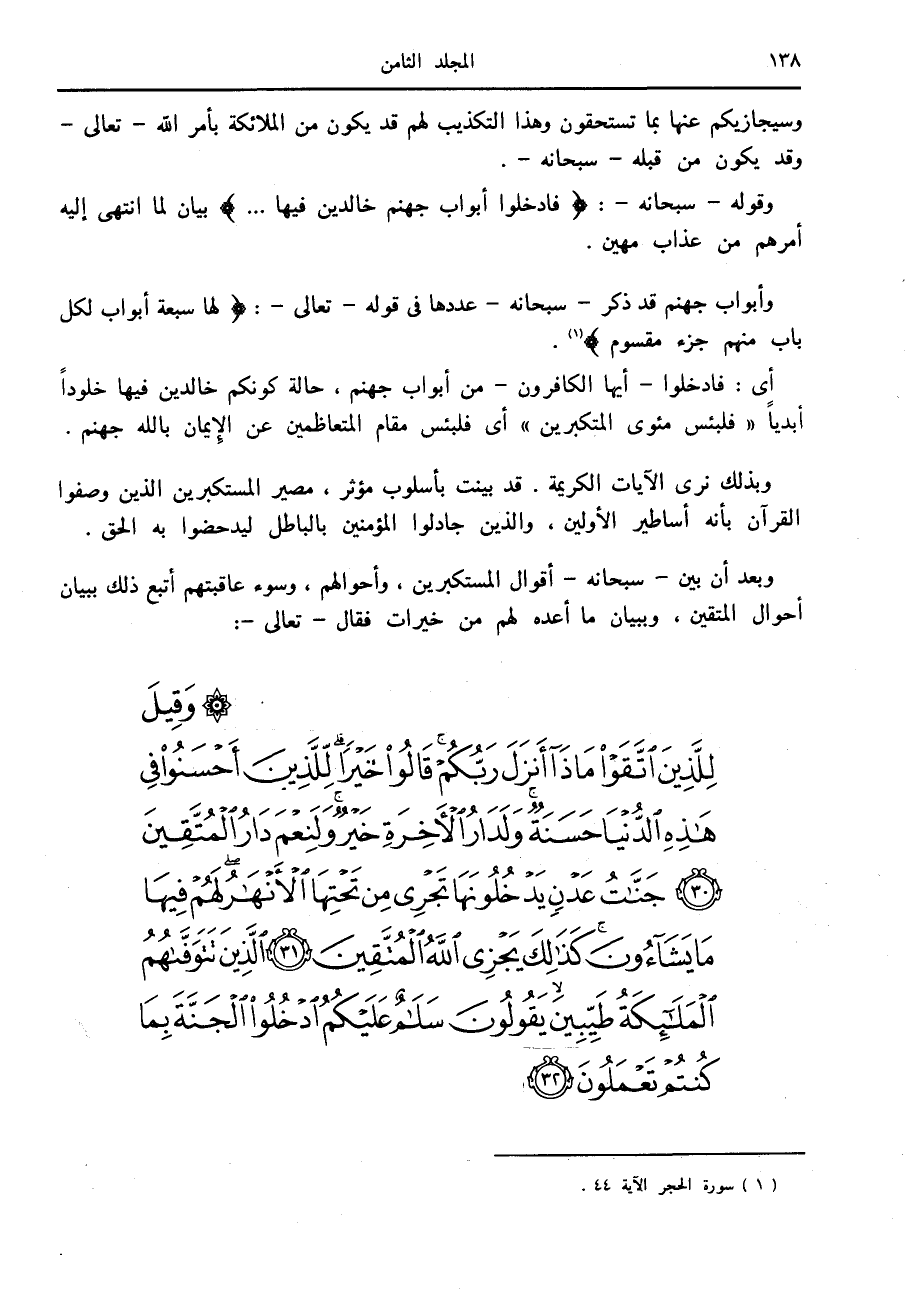 ١٣٨ المجلد الثامن
وسيجازيكم عنها بما تستحقون وهذا التكذيب لهم قد يكون من الملائكة بأمر الله – تعالى –
وقد يكون من قبله – سبحانه – .
وقوله – سبحانه – : ﴿ فادخلوا أبواب جهنم خالدين فيها ... ﴾ بيان لما انتهى إليه
أمرهم من عذاب مهين .
وأبواب جهنم قد ذكر – سبحانه – عددها فى قوله – تعالى – : ﴿ لها سبعة أبواب لكل
باب منهم جزء مقسوم ﴾(١) .
أى : فادخلوا – أيها الكافرون – من أبواب جهنم ، حالة كونكم خالدين فيها خلوداً
أبدياً « فلبئس مثوى المتكبرين » أى فلبئس مقام المتعاظمين عن الإيمان بالله جهنم .
وبذلك نرى الآيات الكريمة . قد بينت بأسلوب مؤثر ، مصير المستكبرين الذين وصفوا
القرآن بأنه أساطير الأولين ، والذين جادلوا المؤمنين بالباطل ليدحضوا به الحق .
وبعد أن بين – سبحانه – أقوال المستكبرين ، وأحوالهم ، وسوء عاقبتهم أتبع ذلك ببيان
أحوال المتقين ، وببيان ما أعده لهم من خيرات فقال – تعالى –:
۞ وَقِيلَ
لِلَّذِينَ ٱتَّقَوۡاْ مَاذَآ أَنزَلَ رَبُّكُمۡۚ قَالُواْ خَيۡرٗاۗ لِّلَّذِينَ أَحۡسَنُواْ فِي
هَٰذِهِ ٱلدُّنۡيَا حَسَنَةٞۚ وَلَدَارُ ٱلۡأٓخِرَةِ خَيۡرٞۚ وَلَنِعۡمَ دَارُ ٱلۡمُتَّقِينَ
٣٠ جَنَّٰتُ عَدۡنٖ يَدۡخُلُونَهَا تَجۡرِي مِن تَحۡتِهَا ٱلۡأَنۡهَٰرُۖ لَهُمۡ فِيهَا
مَا يَشَآءُونَۚ كَذَٰلِكَ يَجۡزِي ٱللَّهُ ٱلۡمُتَّقِينَ ٣١ ٱلَّذِينَ تَتَوَفَّىٰهُمُ
ٱلۡمَلَٰٓئِكَةُ طَيِّبِينَۙ يَقُولُونَ سَلَٰمٌ عَلَيۡكُمُ ٱدۡخُلُواْ ٱلۡجَنَّةَ بِمَا
كُنتُمۡ تَعۡمَلُونَ ٣٢
( ١ ) سورة الحجر الآية ٤٤ .